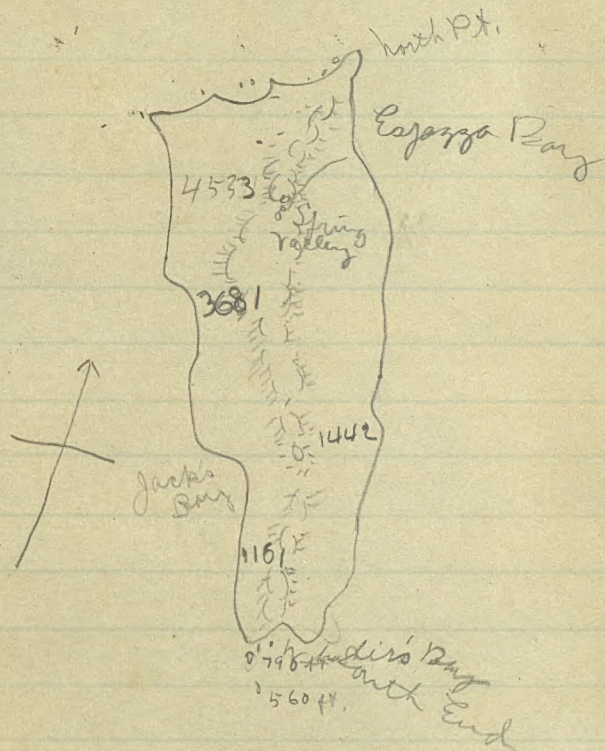 North Pt.
Esjazza Bay
4533
Spring
Valley
3681
1442
Jack's
Bay
1161
Bay
South End
560 ft.